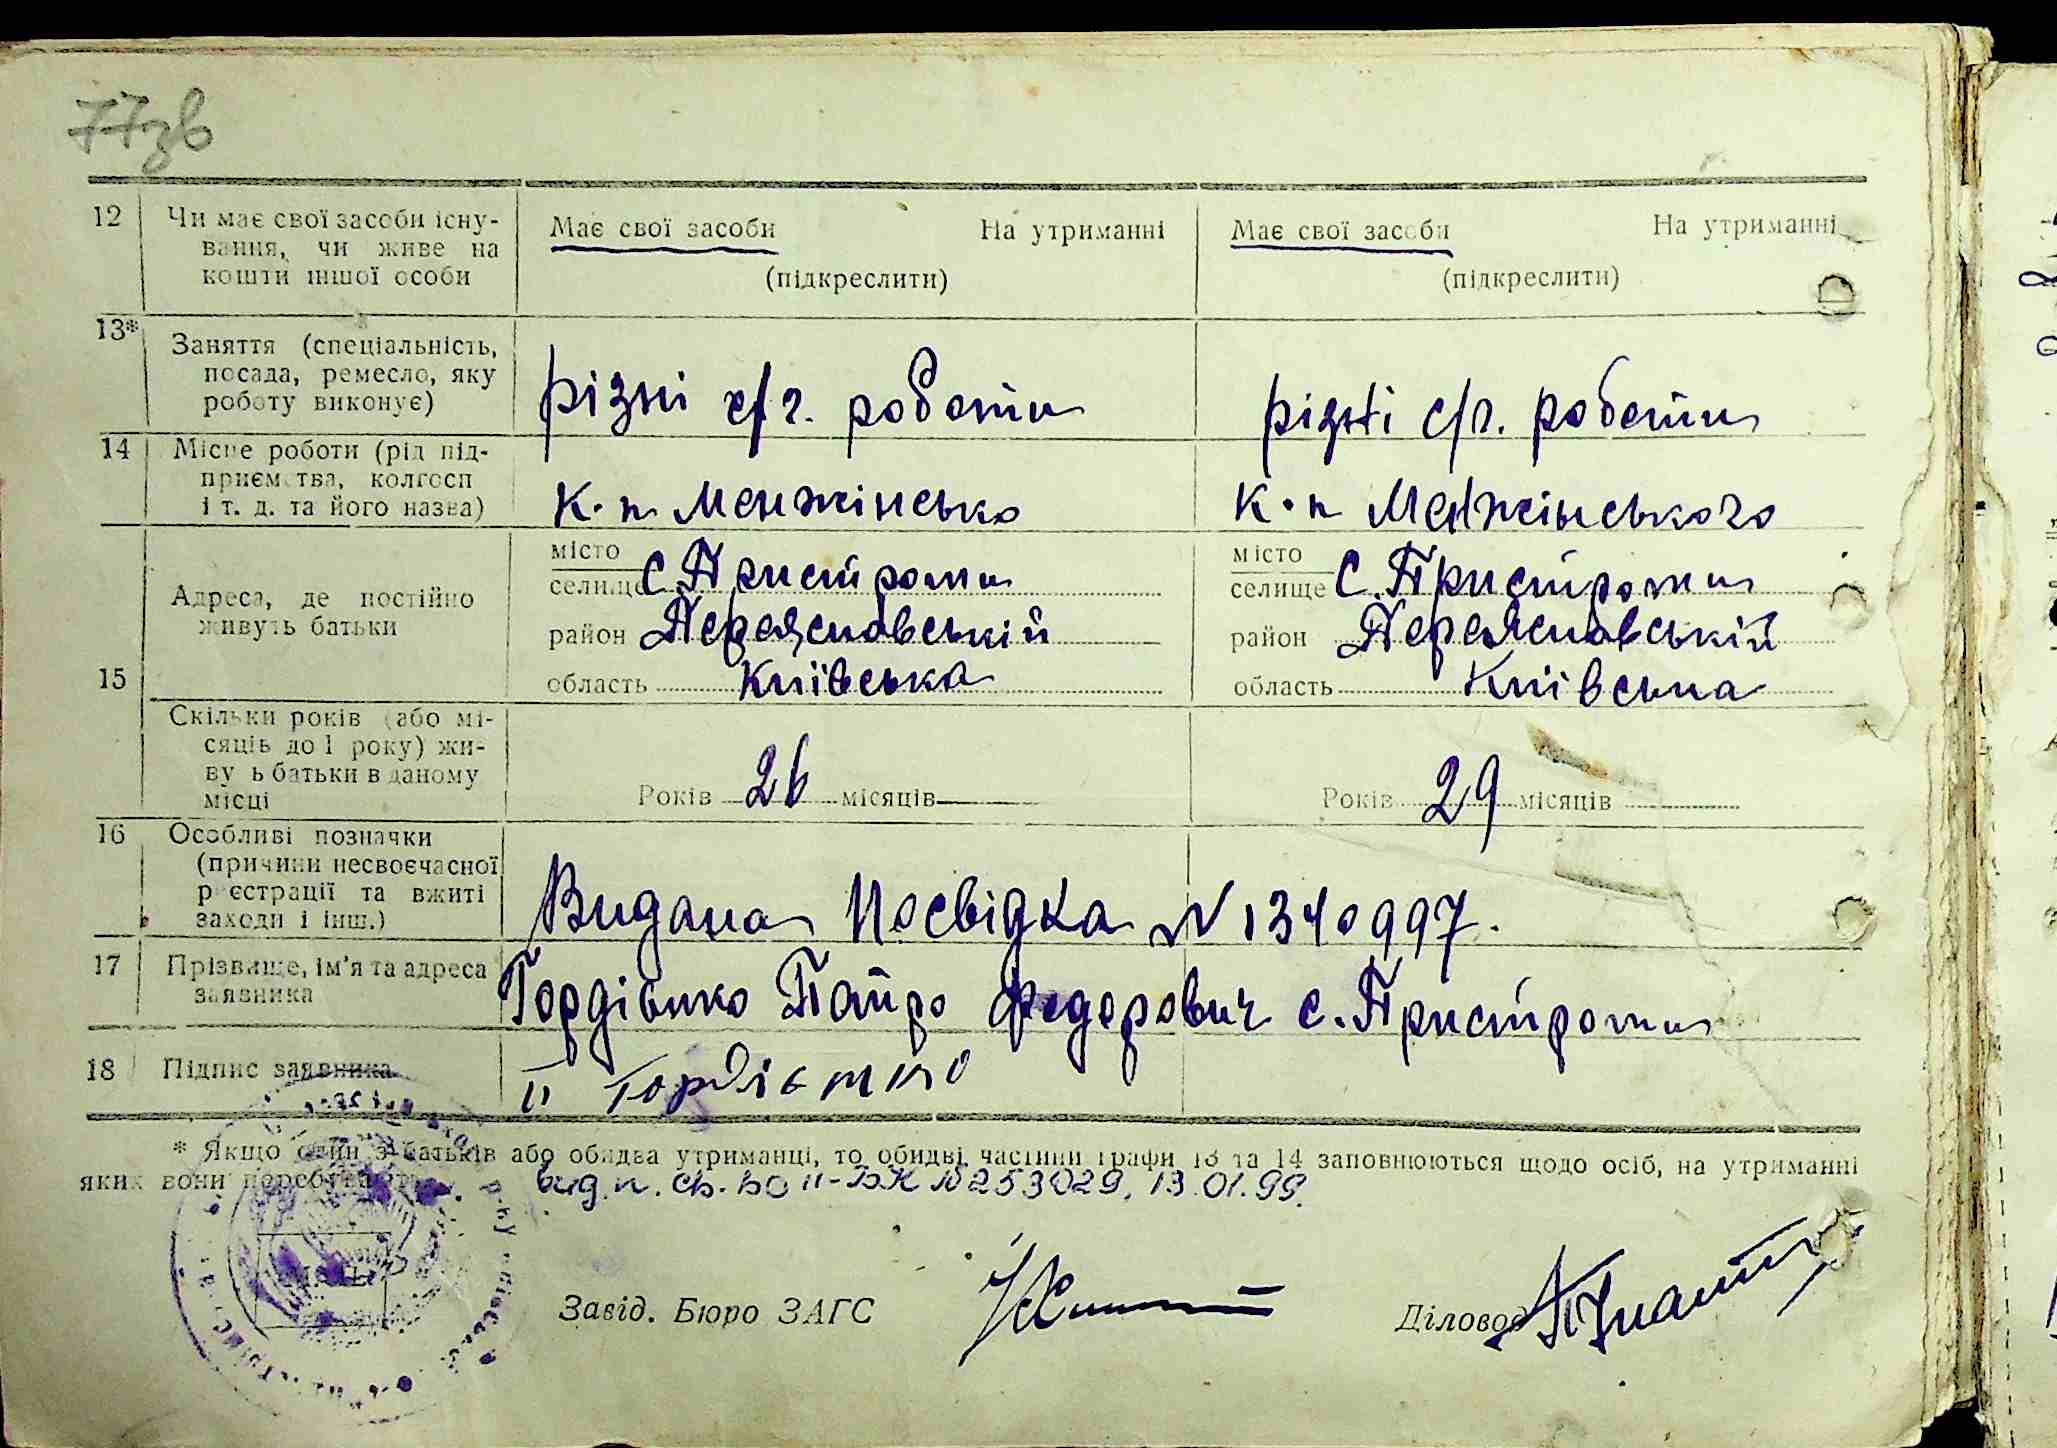 77зв
12 Чи має свої засоби існу-
вання, чи живе на
кошти іншої особи
Має свої засоби На утриманні
(підкреслити)
Має свої засоби На утриманні
(підкреслити)
13* Заняття (спеціальність,
посада, ремесло, яку
роботу виконує)
різні с/г. роботи
різні с/г. роботи
14 Місце роботи (рід під-
приємства, колгосп
і т. д. та його назва)
к-п Менжінсько
к-п Менжінського
15 Адреса, де постійно
живуть батьки
місто
селище с. Пристроми
район Переяславській
область Київська
місто
селище с. Пристроми
район Переяславській
область Київська
Скільки років (або мі-
сяців до 1 року) жи-
вуть батьки в даному
місці
Років 26 місяців
Років 29 місяців
16 Особливі позначки
(причини несвоєчасної
реєстрації та вжиті
заходи і інш.)
Видана Посвідка N 1340997.
17 Прізвище, ім'я та адреса
заявника
Гордієнко Петро Федорович с. Пристроми
18 Підпис заявника
П Гордієнко
* Якщо один з батьків або обидва утриманці, то обидві частини графи 13 та 14 заповнюються щодо осіб, на утриманні
яких вони перебувають.
вид. п. св. во II-БК № 253029, 13.01.99.
Завід. Бюро ЗАГС
Діловод